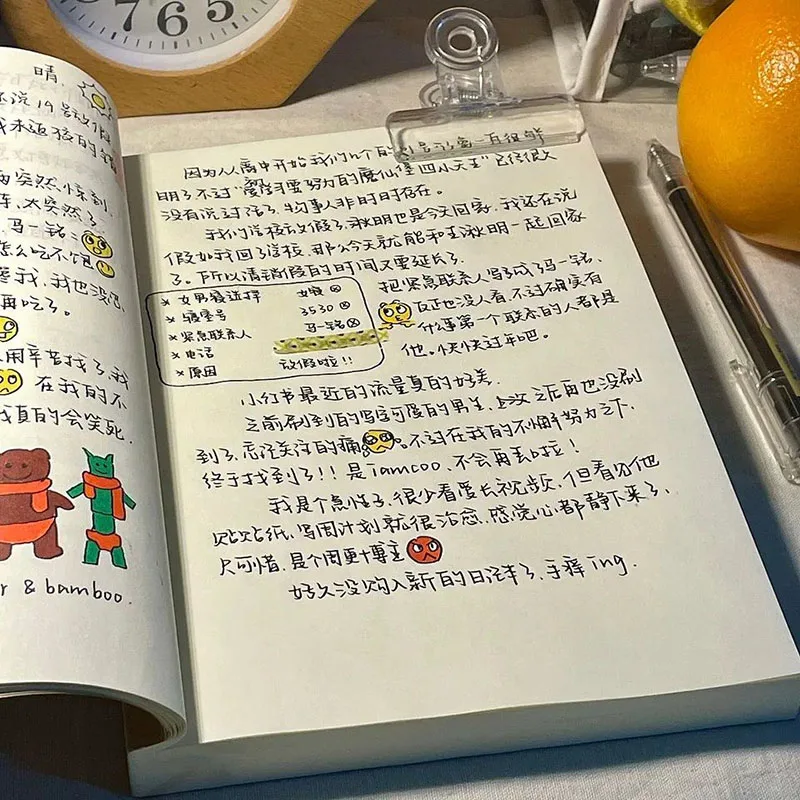 7 6 5
晴.
还说19号放假
突然
太突然了
马一铭
怎么吃不饱
我,我也没
再吃了.
用辛苦找了,我
在我的不
我真的会笑死.
r & bamboo.
因为从高中开始我们几个的
明了不过"要努力的魔仙堡四小天王"已经很久
没有说过话了.物事人非时时存在.
我们学校放假了,湫明也是今天回家,我还在说
假如我回了学校,那么今天就能和王湫明一起回家
了.所以请销假的时间又要延长了.
× 女男寝选择 女寝
× 寝室号 3530
× 紧急联系人 马一铭
× 电话
× 原因 放假啦!!
把紧急联系人写成了马一铭,
反正也没人看.不过确实有
什么事第一个联系的人都是
他。快快过年吧。
小红书最近的流量真的好差.
之前刷到的写字可爱的男生,上次之后再也没刷
到了,忘记关注的痛 。不过在我的不懈努力之下,
终于找到了!!是iamcoo.不会再丢啦!
我是个急性子,很少看漫长视频,但看见他
贴贴纸,写周计划就很治愈.感觉心都静下来了.
只可惜.是个周更博主
好久没购入新的日记本了.手痒ing.